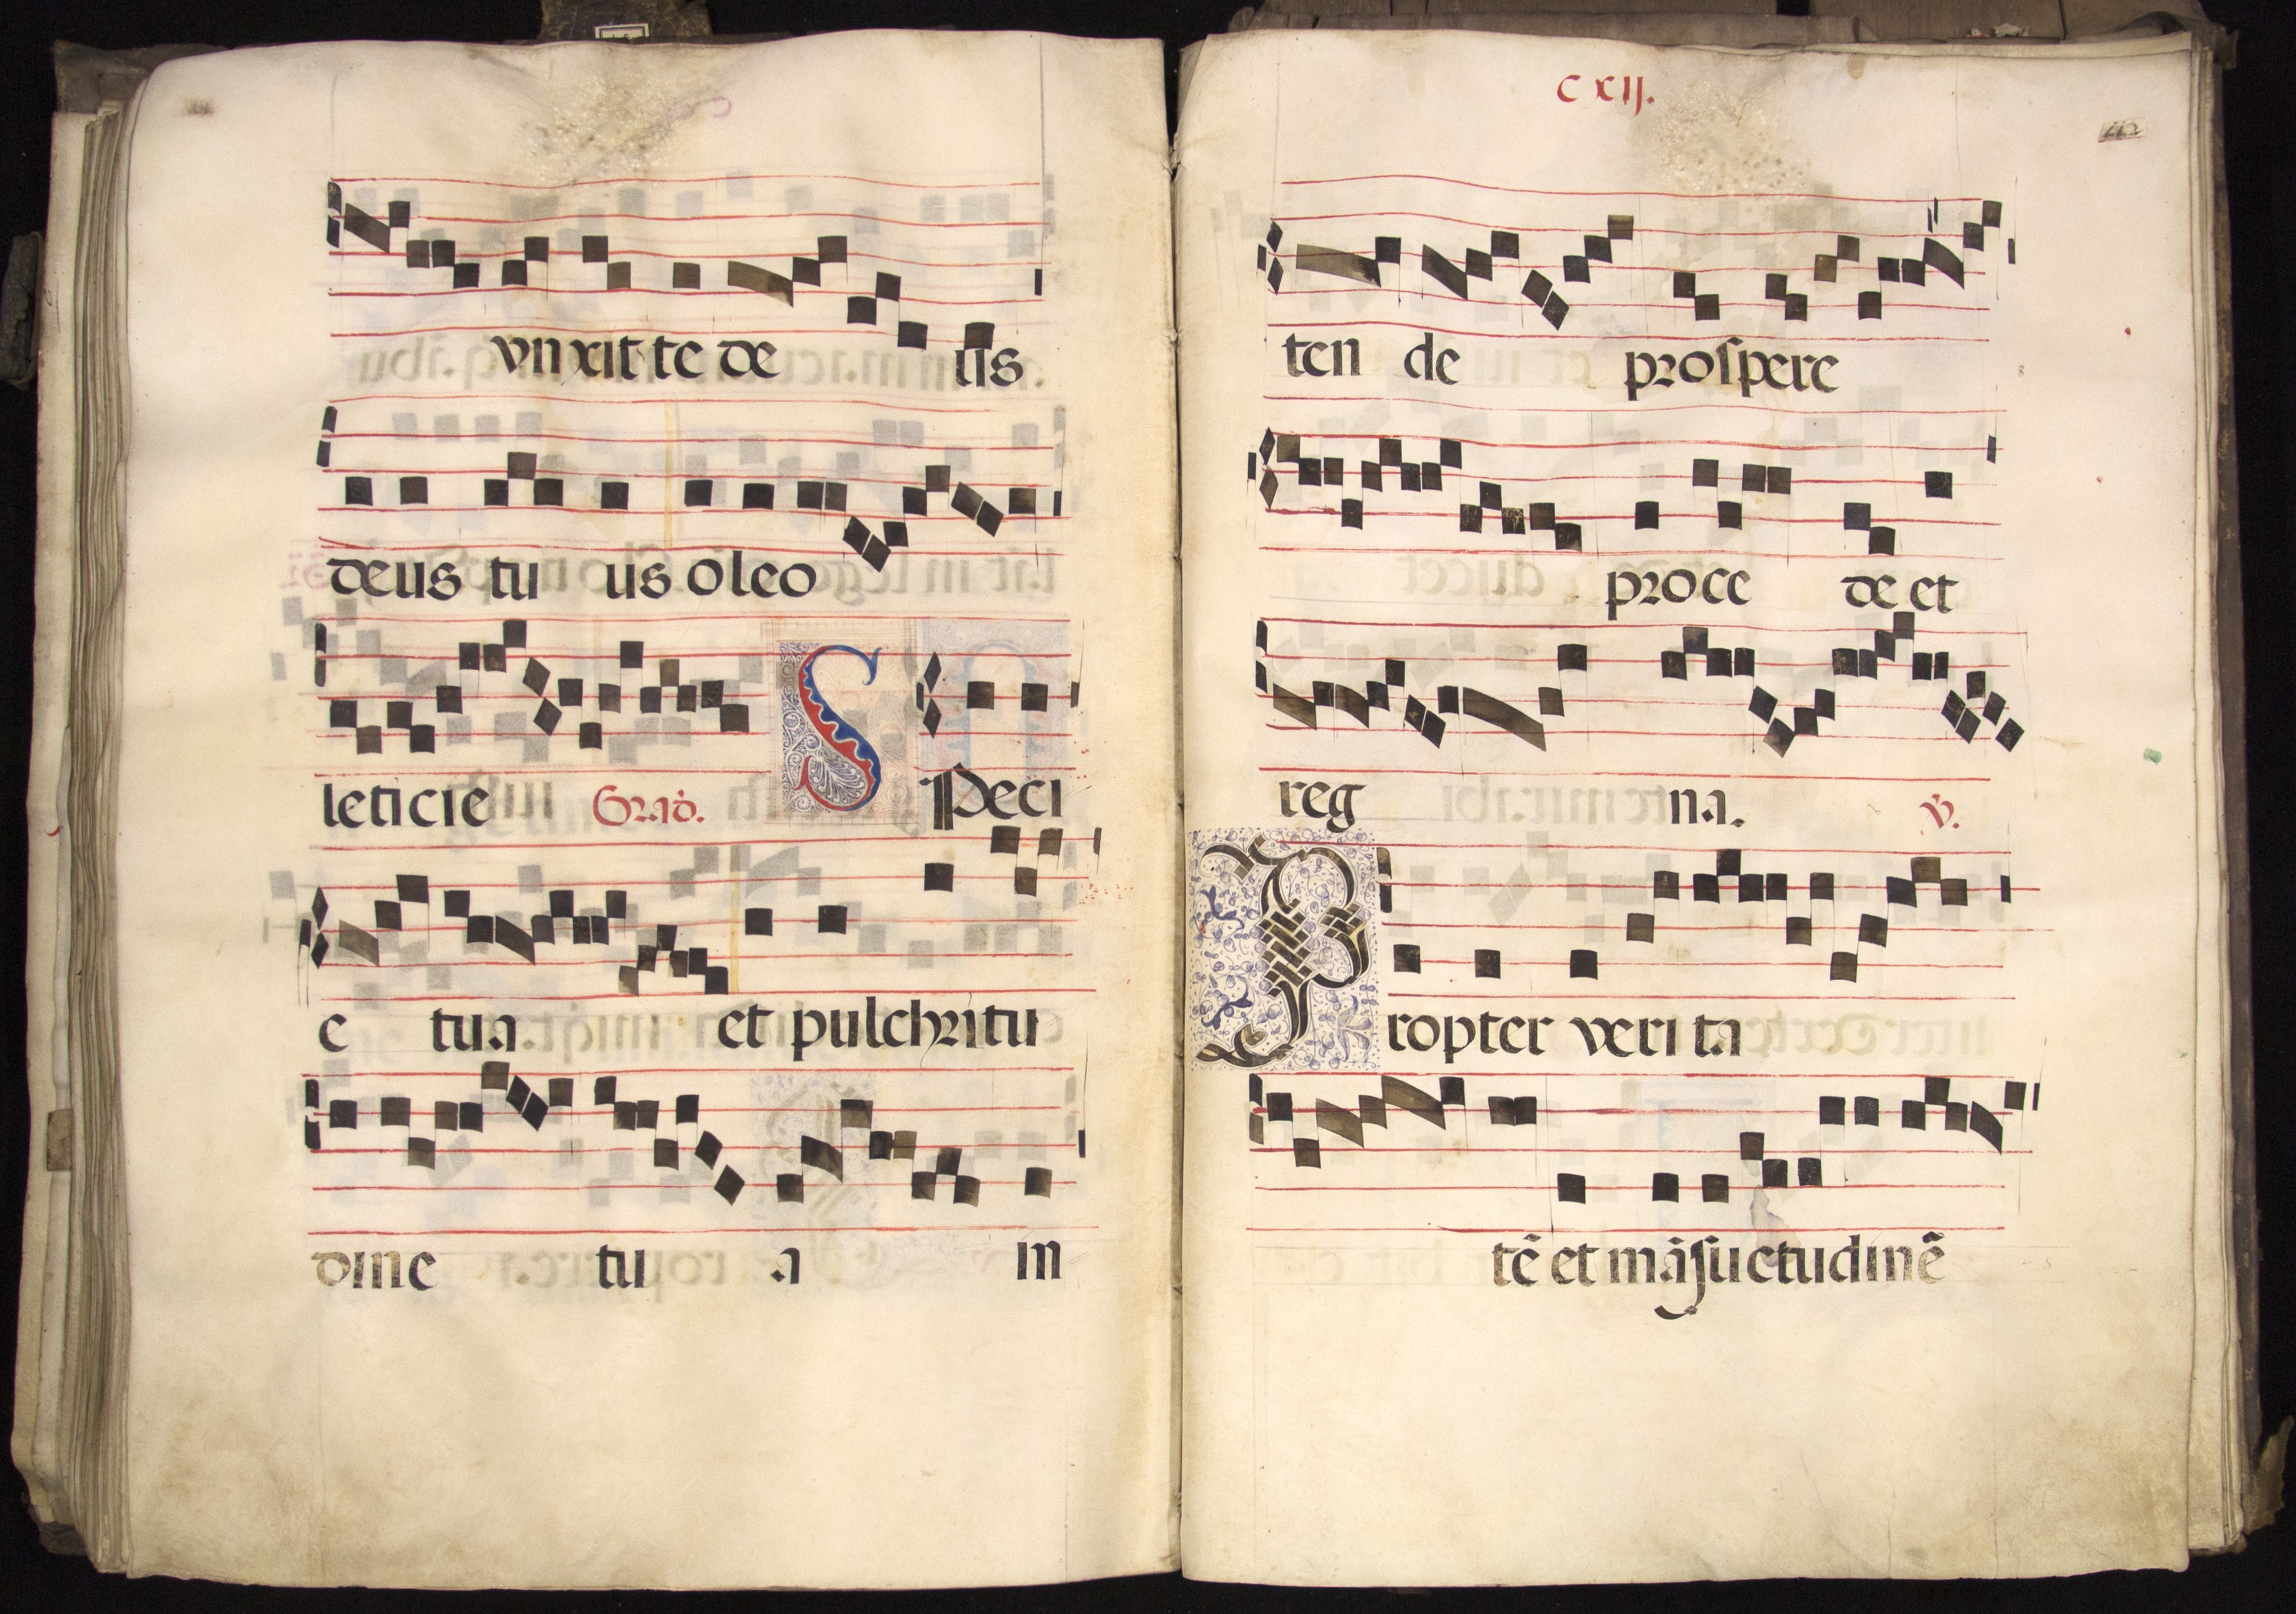 vnxit te de us
deus tu us oleo
leticie Grad. SPeci
e tua et pulchritu
dine tu a in
CXII.
112
ten de prospere
proce de et
reg na. ꝟ.
Propter veri ta
tē et māsuetudinē